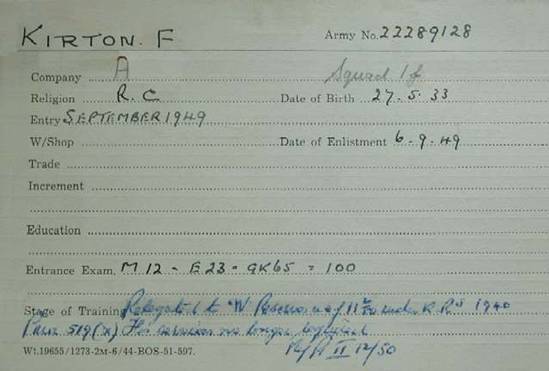 KIRTON. F Army No. 22289128
Company A Squad 1f
Religion R.C Date of Birth 27.5.33
Entry SEPTEMBER 1949
W/Shop Date of Enlistment 6.9.49
Trade
Increment
Education
Entrance Exam. M12 - E23 - GK65 = 100
Stage of Training Relegated to "W Reserve under K Rs 1940
Para 519 (X) His services no longer required
12/50
Wt.19655/1273-2M-6/44-BOS-51-597.